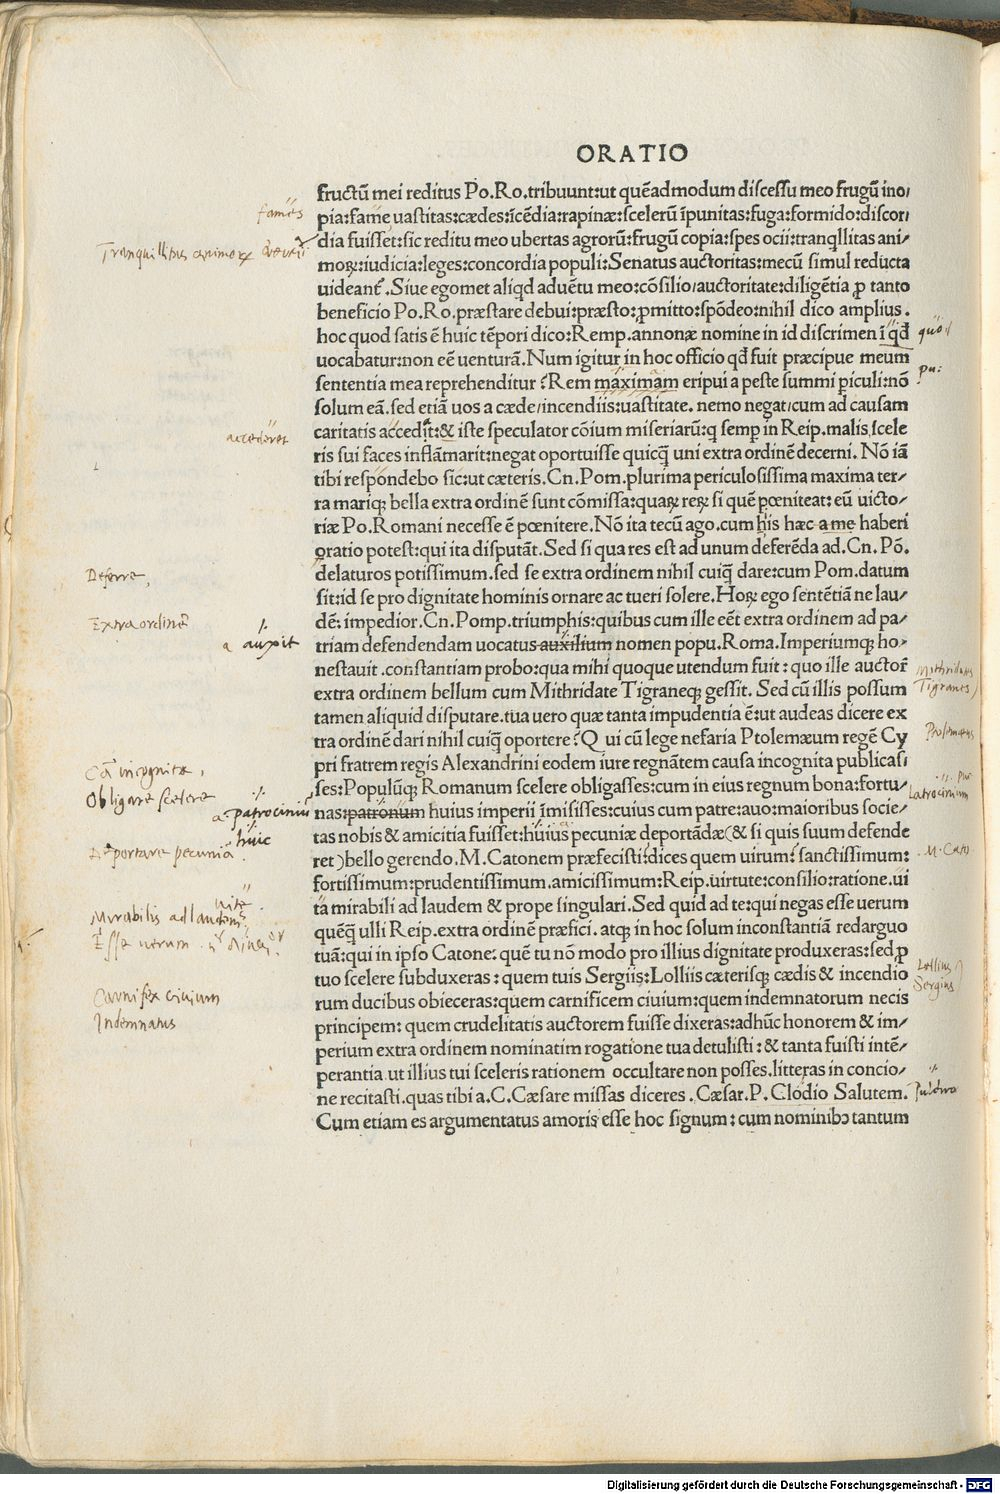 ORATIO
fructū mei reditus Po.Ro.tribuunt:ut quēadmodum discessu meo frugū ino/
pia:fame uastitas:cædes:īcēdia:rapinæ:scelerū īpunitas:fuga:formido:discor/
dia fuisset:sic reditu meo ubertas agrorū:frugū copia:spes ocii:tranqllitas ani/
moꝝ:iudicia:leges:concordia populi:Senatus auctoritas:mecū simul reducta
uideant̄. Siue egomet aliqd aduētu meo:cōsilio/auctoritate:diligētia ꝓ tanto
beneficio Po.Ro.præstare debui:præsto:ꝓmitto:spōdeo:nihil dico amplius.
hoc quod satis ē huic tēpori dico:Remp.annonæ nomine in id discrimen ī qđ
uocabatur:non eē uenturā. Num igitur in hoc officio qđ fuit præcipue meum
sententia mea reprehenditur? Rem maximam eripui a peste summi ꝑiculi:nō
solum eā.sed etiā uos a cæde/incendiis:uastitate. nemo negat/cum ad causam
caritatis accedit:& iste speculator cōium miseriarū:q semꝑ in Reip.malis scele
ris sui faces inflāmarit:negat oportuisse quicq̄ uni extra ordinē decerni. Nō iā
tibi respondebo sic:ut cæteris.Cn.Pom.plurima periculosissima maxima ter/
ra mariqꝫ bella extra ordinē sunt cōmissa:quaꝝ reꝝ si quē pœniteat: eū uicto/
riæ Po.Romani necesse ē pœnitere. Nō ita tecū ago.cum his hæc a me haberi
oratio potest:qui ita disputāt. Sed si qua res est ad unum deferēda ad.Cn.Pō.
delaturos potissimum.sed se extra ordinem nihil cuiq̄ dare:cum Pom.datum
sit:id se pro dignitate hominis ornare ac tueri solere. Hoꝝ ego sentētiā ne lau/
dē: impedior.Cn.Pomp.triumphis:quibus cum ille eēt extra ordinem ad pa/
triam defendendam uocatus auxilium nomen popu.Roma.Imperiumqꝫ ho/
nestauit.constantiam probo:qua mihi quoque utendum fuit: quo ille auctor̄
extra ordinem bellum cum Mithridate Tigraneqꝫ gessit. Sed cū illis possum
tamen aliquid disputare.tua uero quæ tanta impudentia ē:ut audeas dicere ex
tra ordinē dari nihil cuiq̄ oportere? Qui cū lege nefaria Ptolemæum regē Cy
pri fratrem regis Alexandrini eodem iure regnātem causa incognita publicas/
ses:Populūqꝫ Romanum scelere obligasses:cum in eius regnum bona:fortu/
nas:patronum huius imperii īmisisses:cuius cum patre:auo:maioribus socie/
tas nobis & amicitia fuisset:huius pecuniæ deportādæ(& si quis suum defende
ret)bello gerendo.M.Catonem præfecisti:dices quem uirum:sanctissimum:
fortissimum:prudentissimum.amicissimum:Reip.uirtute:consilio:ratione.ui
ta mirabili ad laudem & prope singulari. Sed quid ad te:qui negas esse uerum
quēq̄ ulli Reip.extra ordinē præfici. atqꝫ in hoc solum inconstantiā redarguo
tuā:qui in ipso Catone: quē tu nō modo pro illius dignitate produxeras:sed ꝓ
tuo scelere subduxeras: quem tuis Sergiis:Lolliis cæterisqꝫ cædis & incendio
rum ducibus obieceras:quem carnificem ciuium:quem indemnatorum necis
principem: quem crudelitatis auctorem fuisse dixeras:adhūc honorem & im/
perium extra ordinem nominatim rogatione tua detulisti:& tanta fuisti intē/
perantia ut illius tui sceleris rationem occultare non posses.litteras in concio/
ne recitasti.quas tibi a.C.Cæsare missas diceres. Cæsar.P.Clodio Salutem.
Cum etiam es argumentatus amoris esse hoc signum: cum nominibꝰ tantum
fames
Tranquillitas animoꝝ
accederet
Deferre
Extraordinē
auxit
Cā incognita
Obligare scelere
patrocinium
huic
Deportare pecuniā
uitæ
Mirabilis ad laudem
Esse uerum
Carnifex ciuium
Indemnatus
quod
Mithridates
Tigranes
Ptolemæus
Latrocinium
M. Cato
Lollius
Sergius
Pulchro
Digitalisierung gefördert durch die Deutsche Forschungsgemeinschaft - DFG